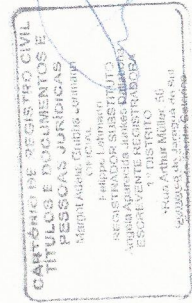 CARTÓRIO DE REGISTRO CIVIL
TÍTULOS E DOCUMENTOS E
PESSOAS JURÍDICAS
Margot Adelia Grubba Lehmann
OFICIAL
Fellipe Lehmann
REGISTRADOR SUBSTITUTO
Angela Aparecida
ESCREVENTE REGISTRADORA
1º DISTRITO
Rua Arthur Müller, 50
Comarca de Jaraguá do Sul
Santa Catarina